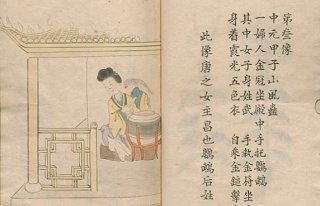 第叁像
中元甲子小風蠱
一婦人金冠坐殿中手托鸚鵡
其中女子身姓武 手執金符坐
身着霞光五色衣 自乘金鎚擊
此像唐之女主昌也鸚鵡后姓